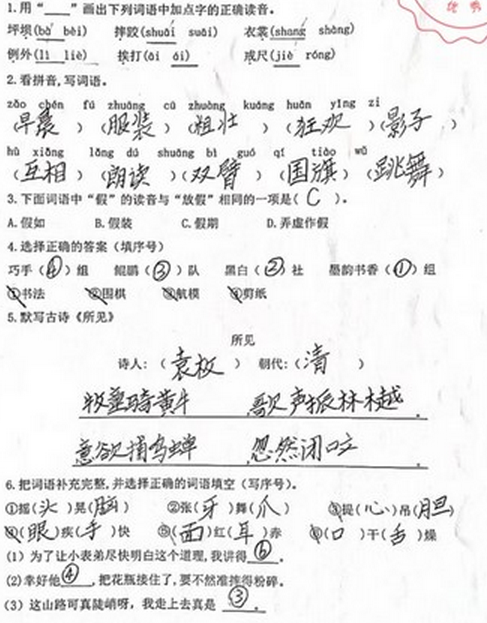 1.用“____”画出下列词语中加点字的正确读音。
坪坝(bà bèi) 摔跤(shuāi suāi) 衣裳(shang shàng)
例外(lì liè) 挨打(ái āi) 戒尺(jiè róng)
2.看拼音,写词语。
zǎo chén fú zhuāng cū zhuàng kuáng huān yǐng zi
(早晨)(服装)(粗壮)(狂欢)(影子)
hù xiāng lǎng dú shuāng bì guó qí tiào wǔ
(互相)(朗读)(双臂)(国旗)(跳舞)
3.下面词语中“假”的读音与“放假”相同的一项是(C)。
A.假如 B.假装 C.假期 D.弄虚作假
4.选择正确的答案(填序号)
巧手(④)组 鲲鹏(③)队 黑白(②)社 墨韵书香(①)组
①书法 ②围棋 ③航模 ④剪纸
5.默写古诗《所见》
所见
诗人:(袁枚) 朝代:(清)
牧童骑黄牛,歌声振林樾。
意欲捕鸣蝉,忽然闭口立。
6.把词语补充完整,并选择正确的词语填空(写序号)。
①摇(头)晃(脑) ②张(牙)舞(爪) ③提(心)吊(胆)
④(眼)疾(手)快 ⑤(面)红(耳)赤 ⑥(口)干(舌)燥
(1)为了让小表弟尽快明白这个道理,我讲得⑥。
(2)幸好他④,把花瓶接住了,要不然准摔得粉碎。
(3)这山路可真陡峭呀,我走上去真是③。